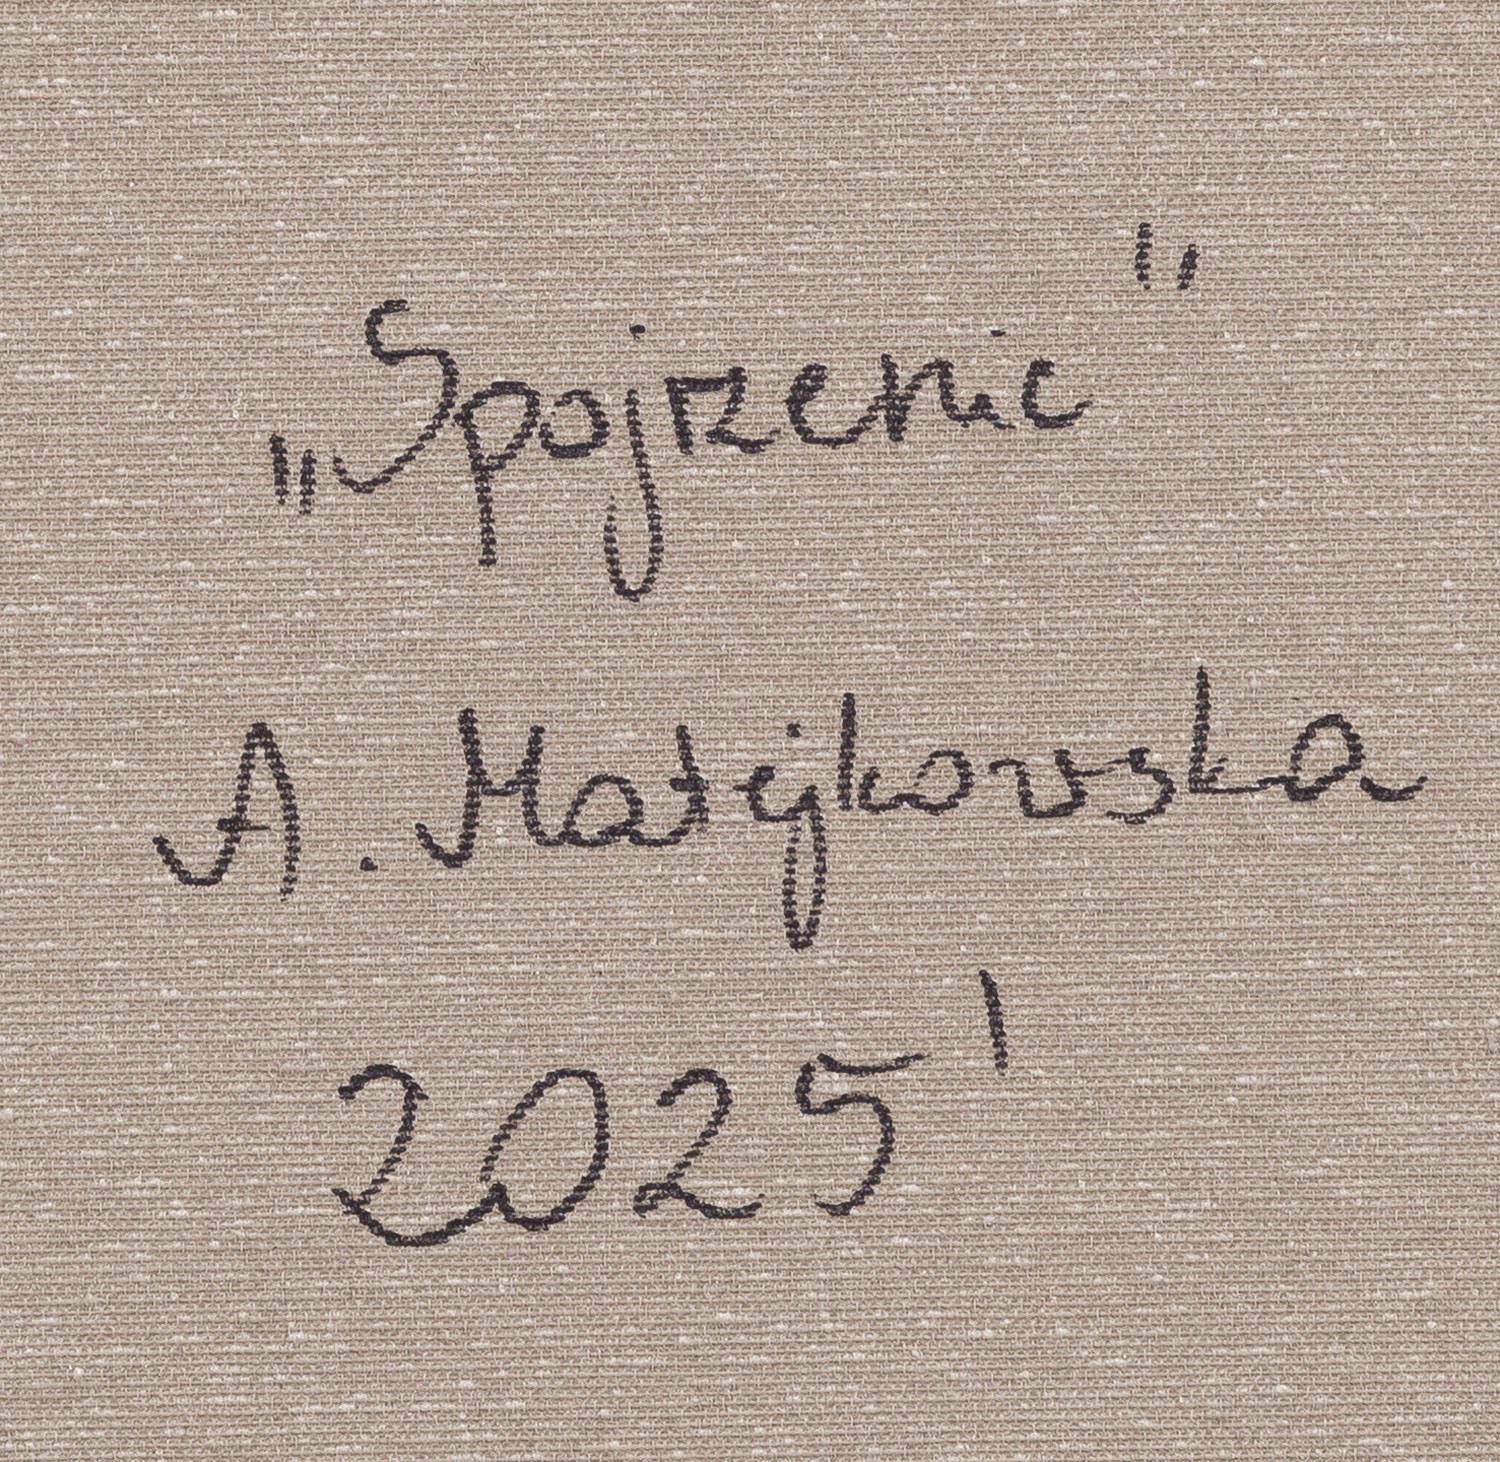 „Spojrzenie"
A. Matejkowska
2025'